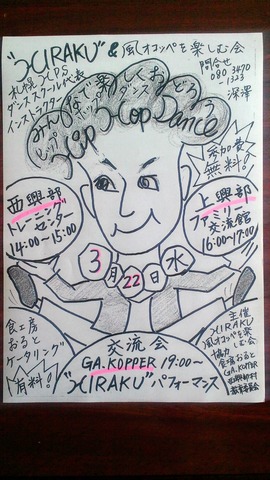 "HIRAKU"&風オコッペを楽しむ会
札幌HIPS
ダンススクール代表
インストラクター
問合せ
080 3470
-1323
深澤
みんなで楽しくおどろう
ヒップホップダンス
HIP HOP Dance
参加費
無料!
西興部
トレーニング
センター
14:00〜15:00
上興部
ファミリー
交流館
16:00〜17:00
3月22日水
食工房
おると
ケータリング
有料!
交流会
GA.KOPPER 19:00〜
"HIRAKU"パフォーマンス
主催
HIRAKU
風オコッペを楽
しむ会
協力
食工房おると
GA.KOPPER
西興部村
教育委員会